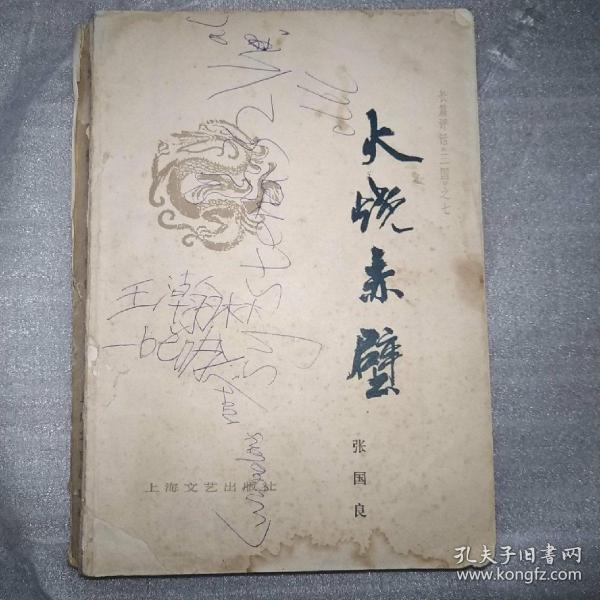 长篇评话“三国”之七
火烧赤壁
张国良
上海文艺出版社
王瀚林
system
windows
孔夫子旧书网
www.kongfz.com